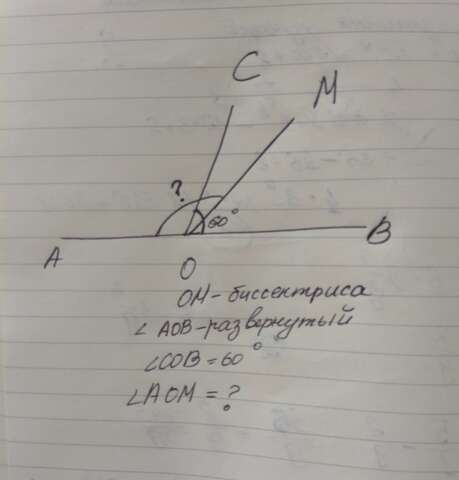 C
M
?
60°
A
O
B
OM - биссектриса
∠AOB - развернутый
∠COB = 60°
∠AOM = ?